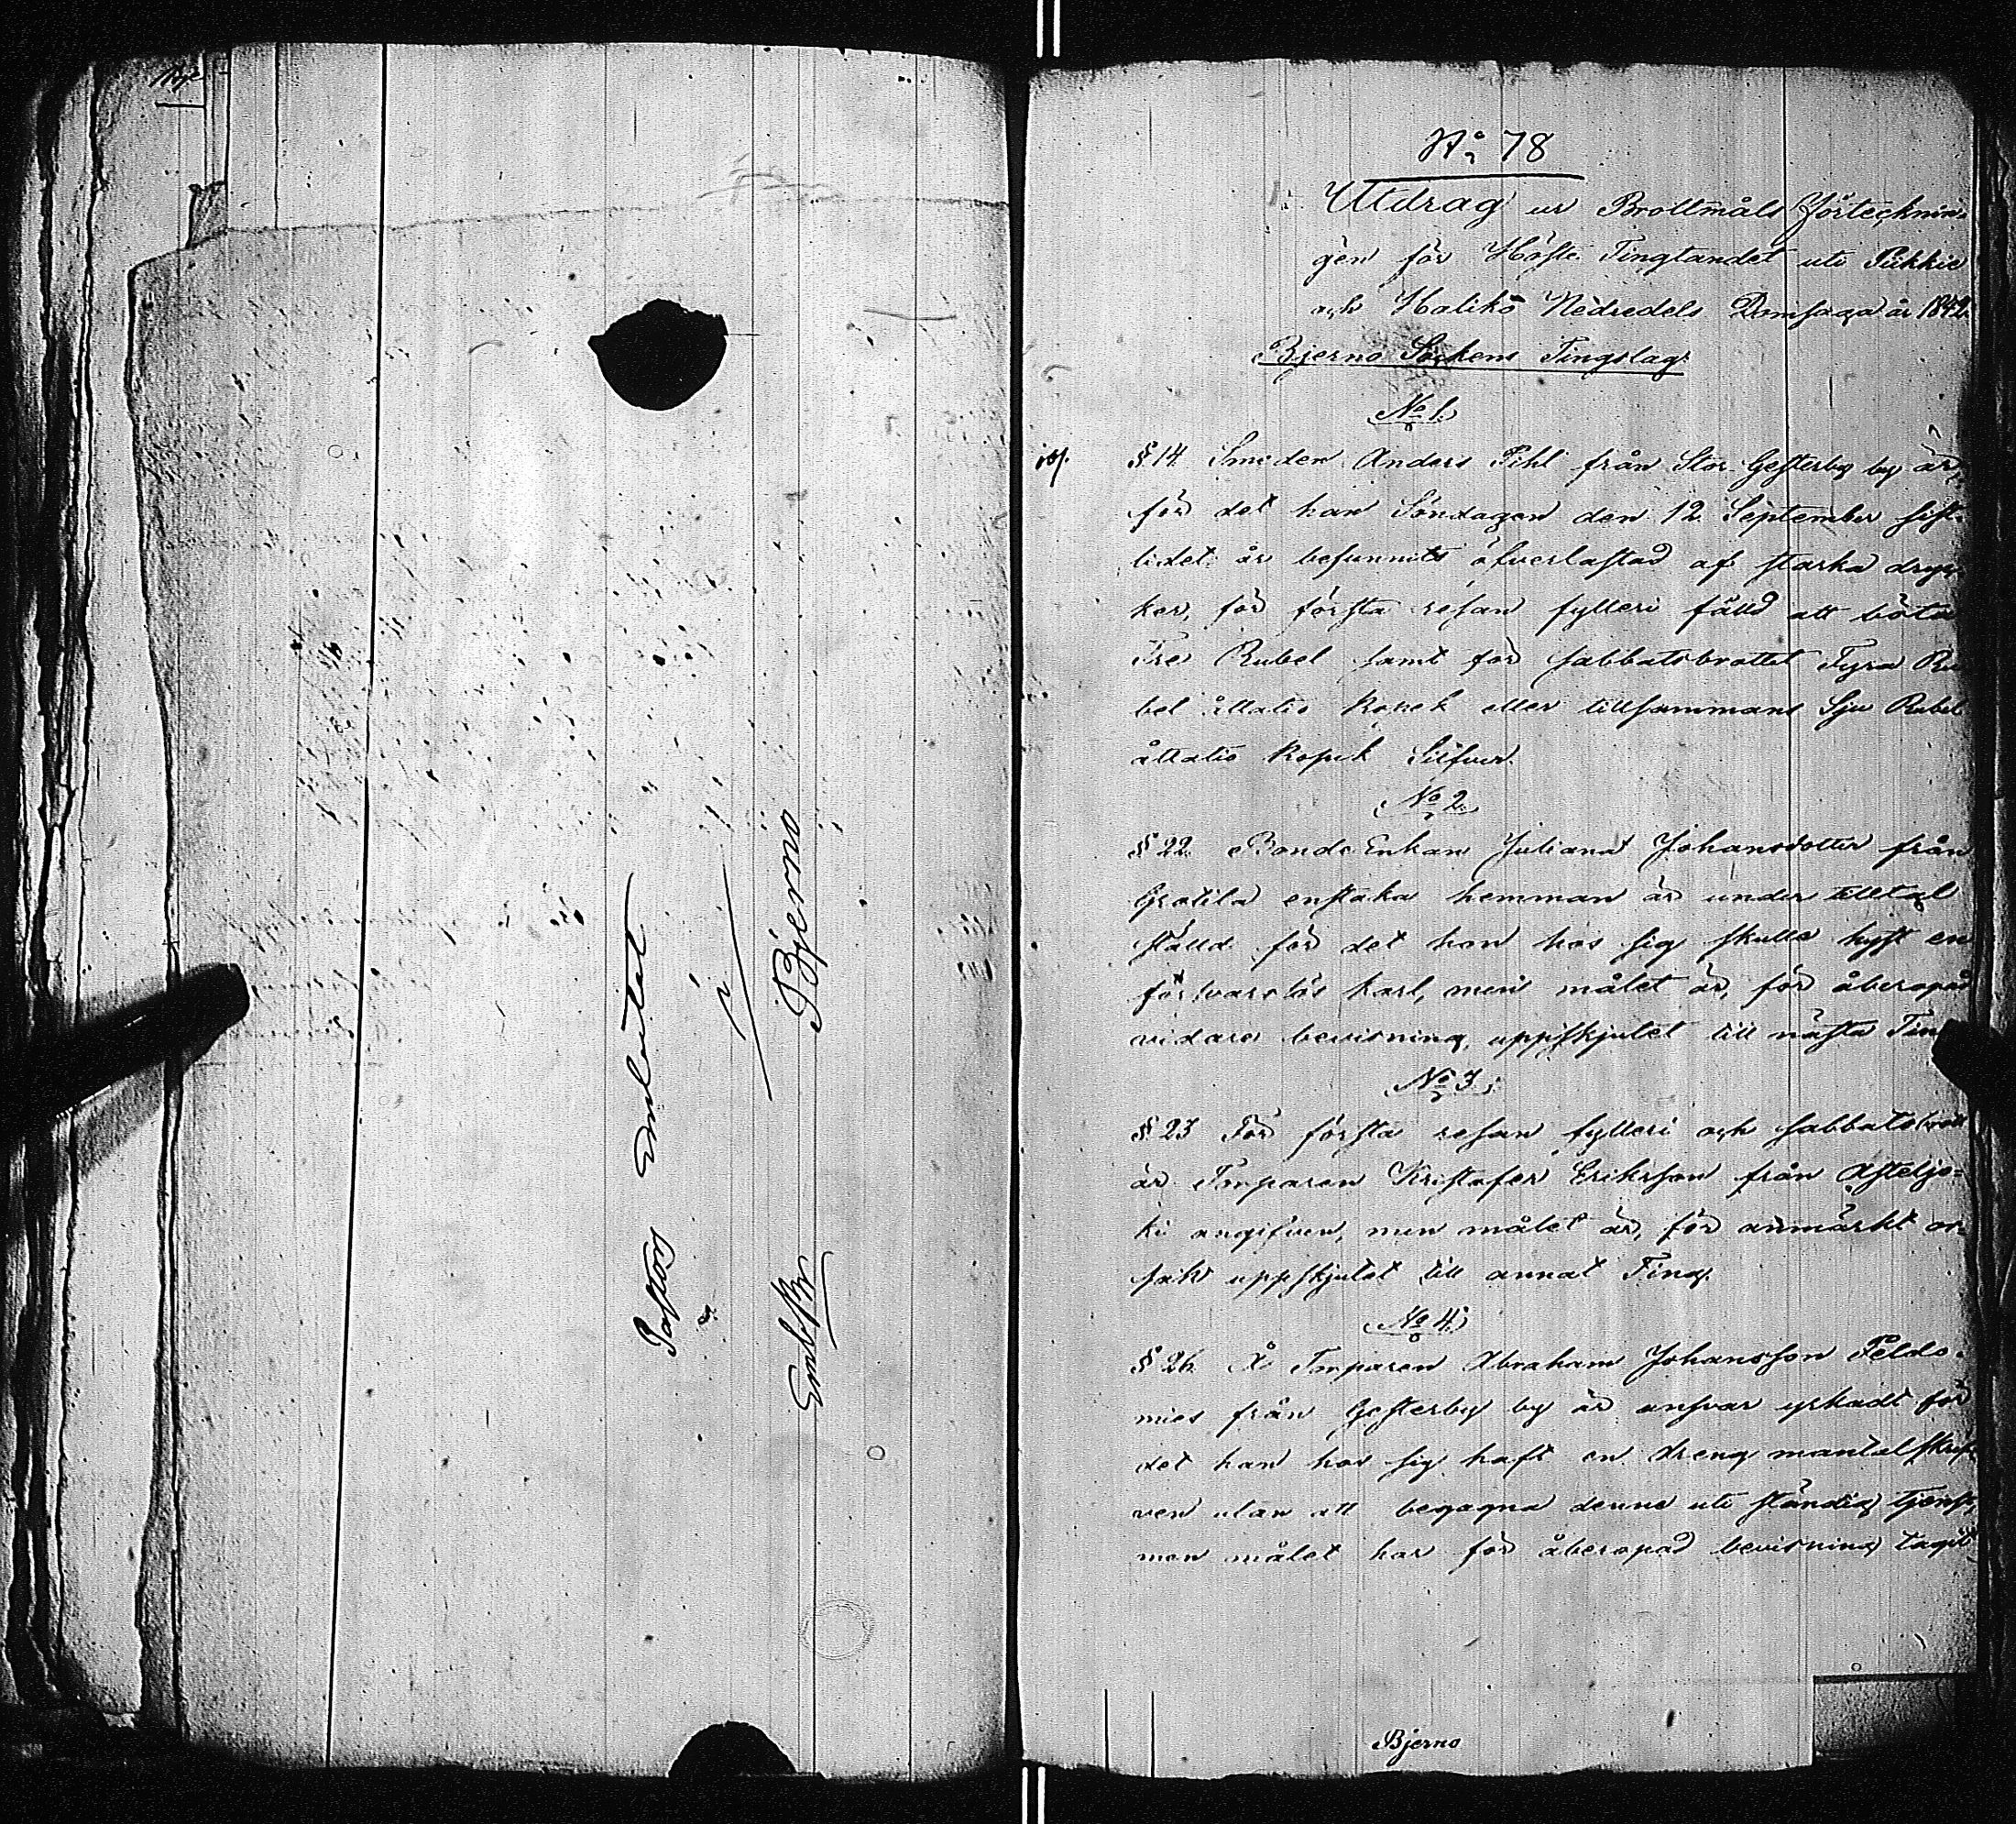 Pastors Embetet
i
Bjerno
Emb. Br.
No 78
Utdrag ur Brottmåls Förtecknin-
gen för Höste Tingtandet uti Pikkie
och Haliko Nedredels Domsaga år 1842.
Bjerno Sockens Tingslag.
No 1.
§ 14. Smeden Anders Pihl från Stor Gesterby by är,
för det han Söndagen den 12 September sist-
lidet år befunnits öfverlastad af starka dryc-
ker, för första resan fylleri fälld att böta
Tre Rubel samt för sabbatsbrottet Fyra Ru
bel åttatio Kopek eller tillsammans Sju Rubel
åttatio Kopek Silfver.
No 2.
§ 22. Bonde Enkan Juliana Johansdotter från
Grotila enstaka hemman är under tilltal
ställd för det hon hos sig skulle hyst en
försvarslös karl, men målet är, för åberopad
vidare bevisning, uppskjutet till nästa Ting
No 3.
§ 23 För första resan fylleri och sabbatsbrott
är Torparen Kristofer Eriksson från Asteljo-
ki angifven, men målet är, för anmärkt or-
sak uppskjutet till annat Ting.
No 4.
§ 26. Å Torparen Abraham Johansson Peldo-
mies från Gesterby by är ansvar yrkadt för
det han hos sig haft en dreng mantalskrif-
ven utan att begagna denne uti ständig tjenst,
men målet har för åberopad bevisning tagit
Bjerno